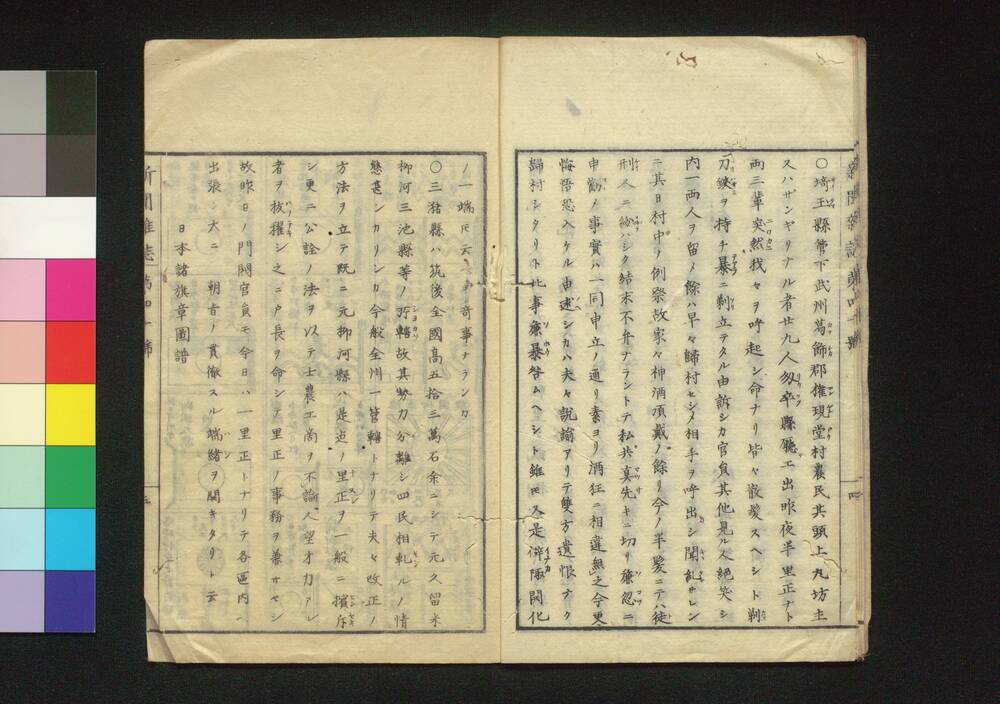 新聞雜誌第四十號
○埼玉縣管下武州葛飾郡權現堂村農民共頭上丸坊主
スハザンギリナル者廿九人匆卒縣廳エ出昨夜半里正ナト
両三輩突然我々ヲ呼起シ命ナリ皆々散髪スヘシト剃
刀鋏ヲ持チ暴ニ剃立テタル由訴シカ官員其他見ル人絕笑シ
内一両人ヲ留メ餘ハ早々歸村セシメ相手ヲ呼出シ聞糺サレシ
ニ其日村中ノ例祭故家々神酒頂戴ノ餘リ今ノ半髪ニテハ徒
刑人ニ紛ハシク結末不弁ナラントテ私共真先キニ切リ麁忽ニ
申勸メ事實ハ一同申立ノ通リ素ヨリ酒狂ニ相違無之今更
悔悟恐入ケル由述シカハ夫々說諭アリテ雙方遺恨ナク
歸村シタリト此事麁暴咎ムヘシト雖𪜈又是僻陬開化
ノ一端𪜈云ヘキ奇事ナランカ
○三潴縣ハ筑後全國高五拾三萬石余ニシテ元久留米
柳河三池縣等ノ所轄故其勢力分離シ四民相軋ルノ情
態甚シカリシカ今般全州一管轄トナリテ夫々改正ノ
方法ヲ立テ既ニ元柳河縣ハ是迠ノ里正ヲ一般ニ擯斥
シ更ニ公詮ノ法ヲ以テ士農工商ヲ不論人望才力アル
者ヲ抜擢シ之ニ戸長ヲ命シテ里正ノ事務ヲ兼サセシ
故昨日ノ門閥官員モ今日ハ一里正トナリテ各區内ヘ
出張シ大ニ 朝旨ノ貫徹スル端緒ヲ開キタリト云
日本諸旗章圖譜
新聞雜誌第四十號